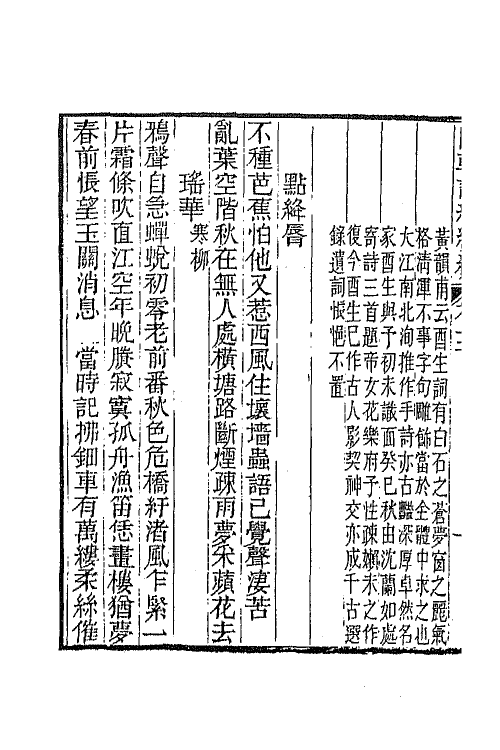 黃韻甫云酉生詞有白石之蒼夢窗之麗氣
格清渾不事字句雕飾當於全體中求之也
大江南北洵推作手詩亦古豔深厚卓然名
家酉生與予初未識面癸巳秋由沈蘭如處
寄詩三首題帝女花樂府予性疎嬾未之作
復今酉生已作古人影契神交亦成千古選
錄遺詞悵悒不置
點絳唇
不種芭蕉怕他又惹西風住壞墻蟲語已覺聲淒苦
亂葉空階秋在無人處橫塘路斷煙疎雨夢釆蘋花去
瑤華 寒柳
鴉聲自急蟬蛻初零老前番秋色危橋紆渚風乍緊一
片霜條吹直江空年晚賸寂寞孤舟漁笛恁畫樓猶夢
春前悵望玉關消息 當時記拂鈿車有萬縷柔絲催